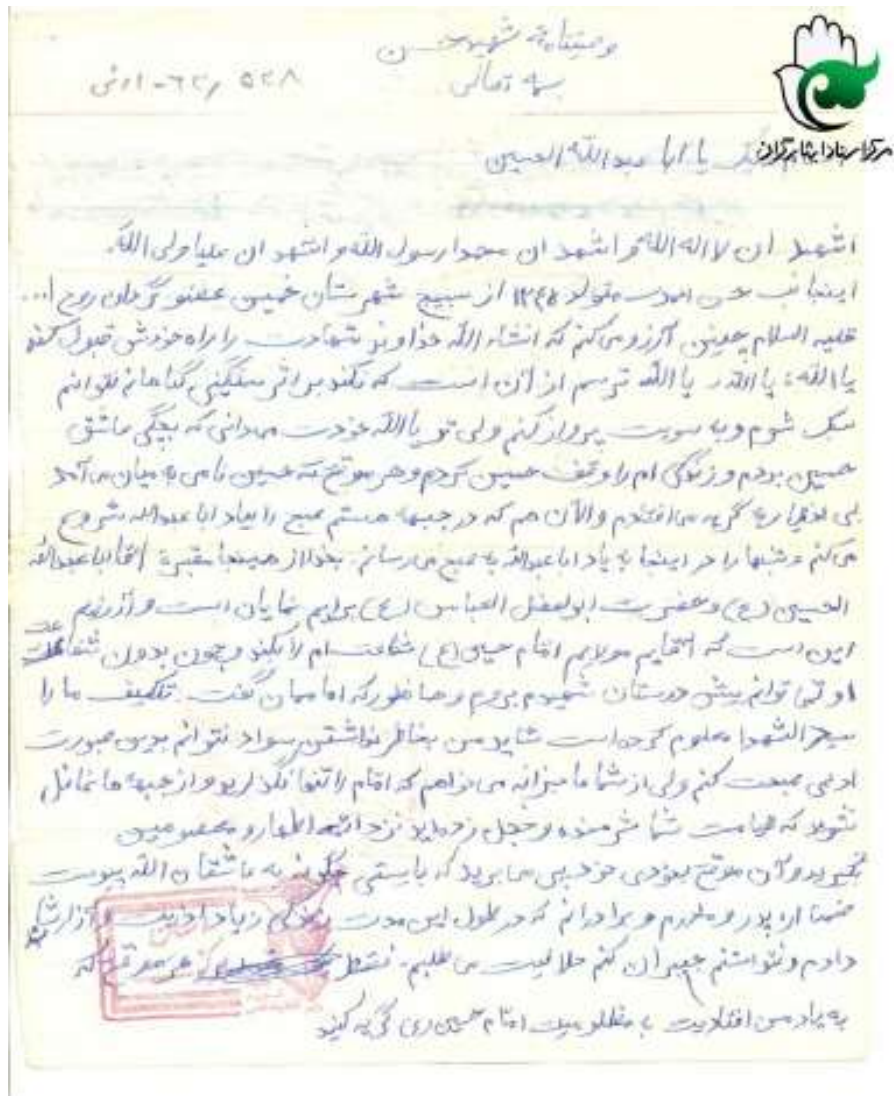 وصیتنامه شهید حسن
بسمه تعالی
یا ابا عبدالله الحسین
مرکز اسناد ایثارگران
اشهد ان لا اله الا الله و اشهد ان محمدا رسول الله و اشهد ان علیا ولی الله
اینجانب حسن متولد ۱۳۴۸ از بسیج شهرستان خمین عضو گردان روح ا...
علیه السلام چنین آرزو می کنم که انشاء الله خداوند شهادت را راه خودش قبول کند
یا الله، یا الله، یا الله ترسم از آن است که نکند بر اثر سنگینی گناهانم نتوانم
سبک شوم و به سویت پرواز کنم ولی تو یا الله خودت میدانی که بچگی عاشق
حسین بودم و زندگی ام را وقف حسین کردم و هر موقع که حسین نامی به میان می آمد
بی اختیار به گریه می افتادم و الان هم که در جبهه هستم صبح را بیاد ابا عبدالله شروع
می کنم و شبها را در اینجا به یاد ابا عبدالله به صبح می رسانم. بخدا از همینجا مقبره آقا ابا عبدالله
الحسین (ع) و حضرت ابوالفضل العباس (ع) برایم نمایان است و آرزویم
این است که آقایم مولایم امام حسین (ع) شفاعت ام را بکند و چون بدون شفاعت
او نمی توانم پیش دوستان شهیدم بروم و همانطور که امام مان گفت. تکلیف ما را
سید الشهدا معلوم کرده است شاید من بخاطر نداشتن سواد نتوانم بدین صورت
ادبی صحبت کنم ولی از شما عاجزانه می خواهم که امام را تنها نگذارید و از جبهه ها غافل
نشوید که قیامت شما شرمنده و خجل زده اید نزد ائمه اطهار و معصومین
و آن موقع بخودی خود پی می برید که بایستی چگونه به عاشقان الله پیوست
ضمنا از پدر و مادرم و برادرانم که در طول این مدت زندگی زیاد اذیت و آزارشان
دادم و نتوانستم جبران کنم حلالیت می طلبم. فقط هر موقع که
به یاد من افتادید به مظلومیت امام حسین (ع) گریه کنید